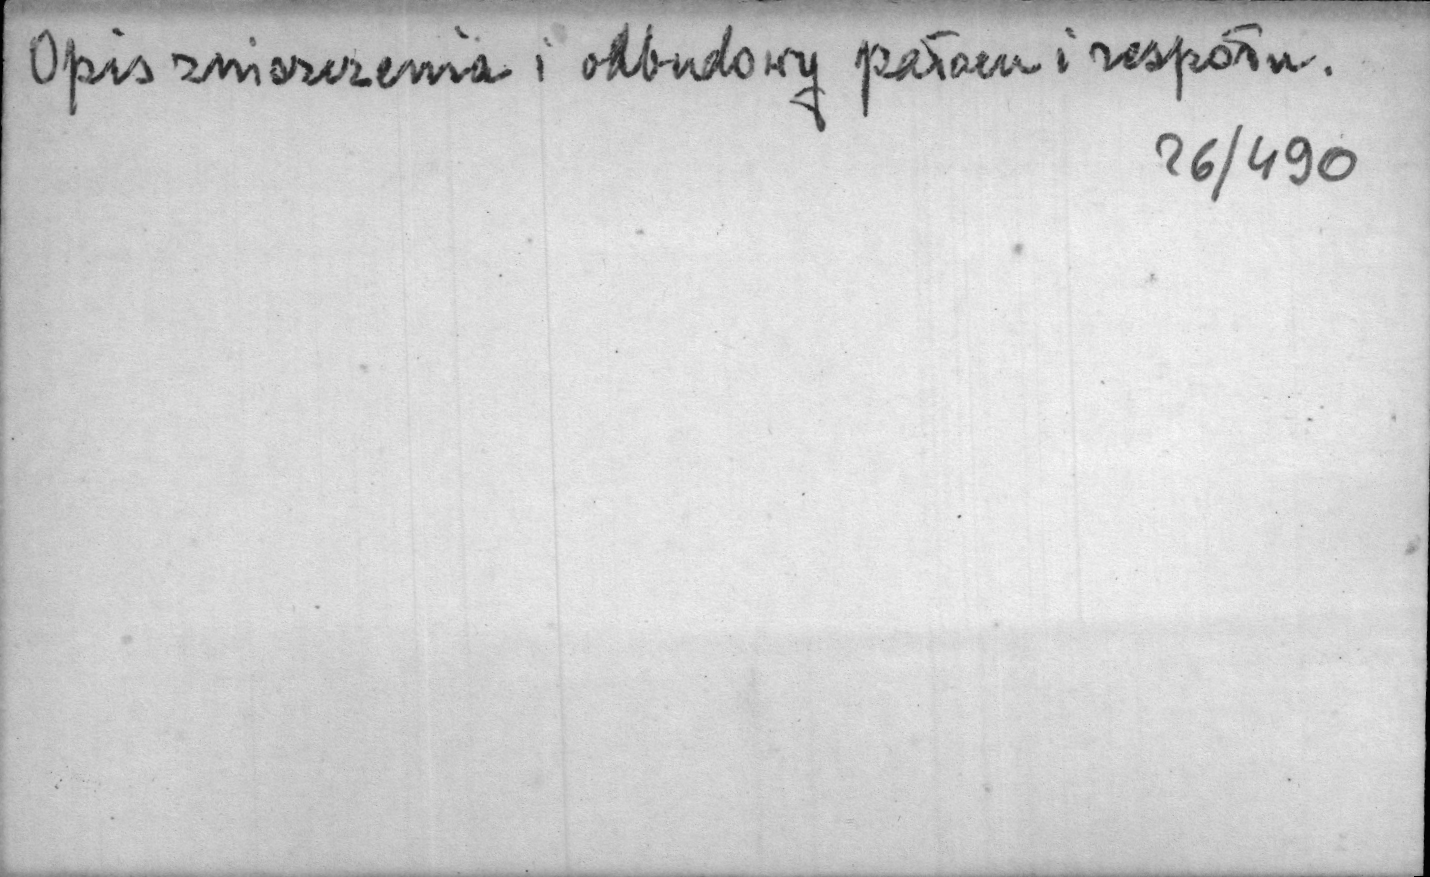 Opis zniszczenia i odbudowy pałacu i zespołu.
26/490